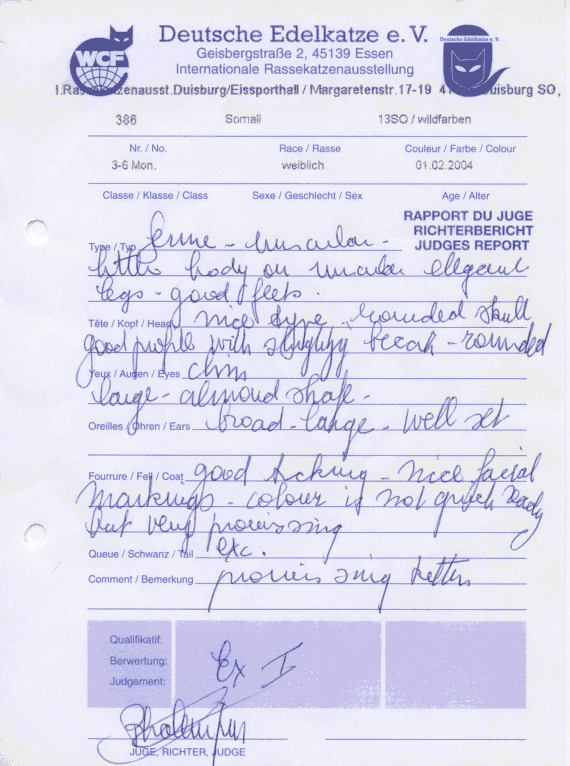 Deutsche Edelkatze e. V.
Geisbergstraße 2, 45139 Essen
Internationale Rassekatzenausstellung
WCF
Deutsche Edelkatze e. V.
Duisburg/Eissporthall / Margaretenstr.17-19 Duisburg SO,
386 Somali 13SO / wildfarben
Nr. / No. Race / Rasse Couleur / Farbe / Colour
3-6 Mon. weiblich 01.02.2004
Classe / Klasse / Class Sexe / Geschlecht / Sex Age / Alter
RAPPORT DU JUGE
RICHTERBERICHT
JUDGES REPORT
Type / Typ
body on elegant
legs - good feets.
Tête / Kopf / Head nice type - rounded skull
good profile with break - rounded
Yeux / Augen / Eyes chin
large - almond shape -
Oreilles / Ohren / Ears broad - large - well set
Fourrure / Fell / Coat good ticking - nice facial
markings - colour is not ready
but very promissing
Queue / Schwanz / Tail exc.
Comment / Bemerkung promissing
Qualifikatif:
Berwertung:
Judgement:
Ex I
JUGE, RICHTER, JUDGE